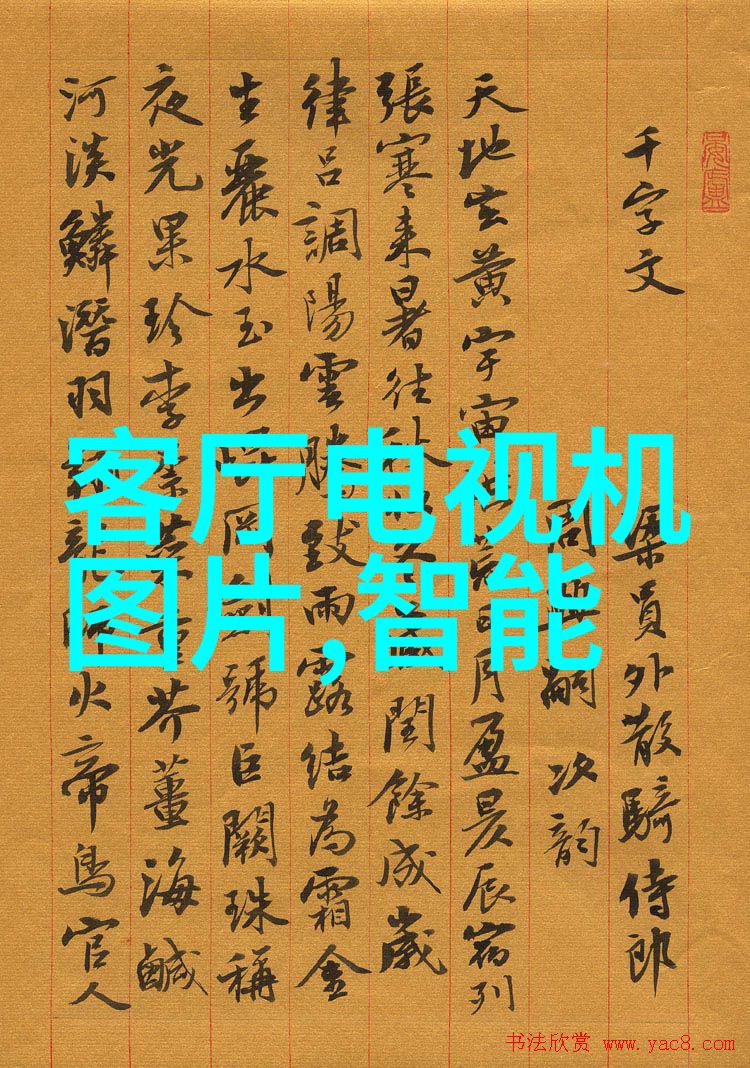 千字文
梁員外散騎侍郎
周興嗣次韵
天地玄黄宇宙洪荒日月盈昃辰宿列
張寒来暑往秋收冬藏閏餘成歲
律吕調陽雲騰致雨露结為霜金
生麗水玉出崑岡劍號巨闕珠稱
夜光果珍李柰菜重芥薑海鹹
河淡鱗潛羽翔龍師火帝鳥官人
客厅电视机
图片,智能
书法欣赏 www.yac8.com